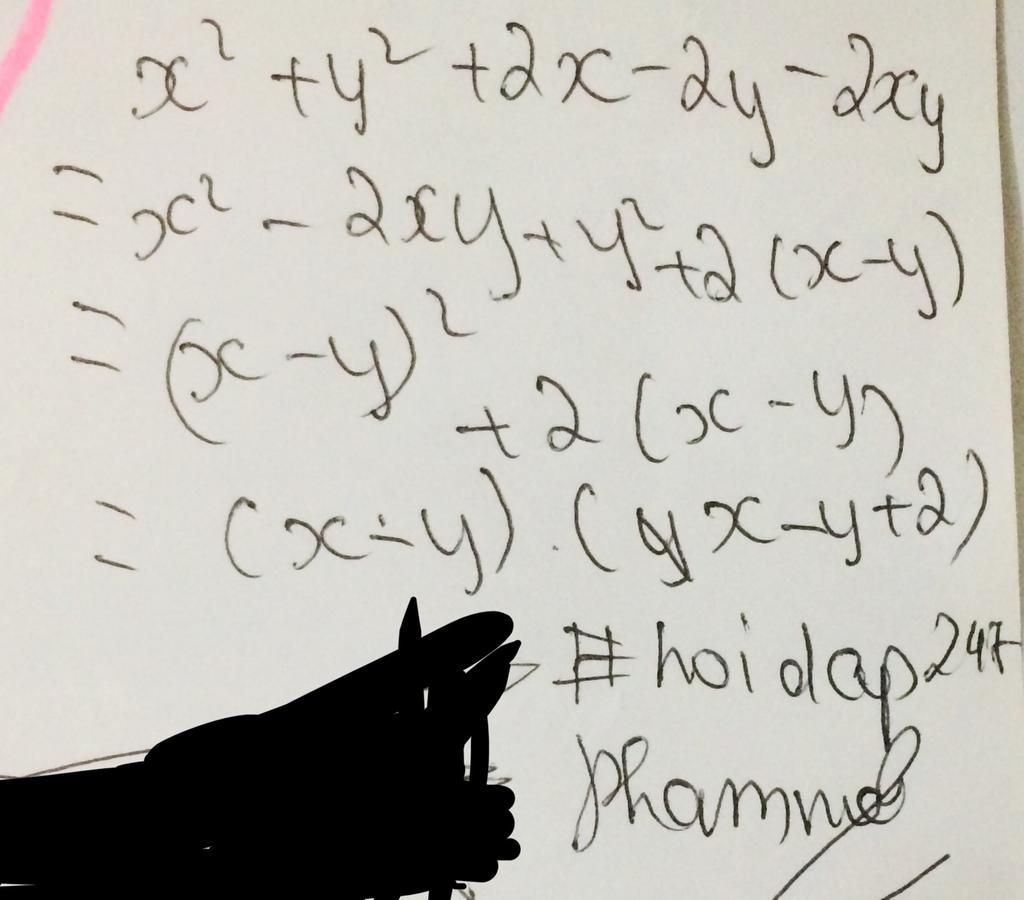 x² + y² + 2x - 2y - 2xy
= x² - 2xy + y² + 2 (x - y)
= (x - y)² + 2 (x - y)
= (x - y) . (x - y + 2)
#hoidap247